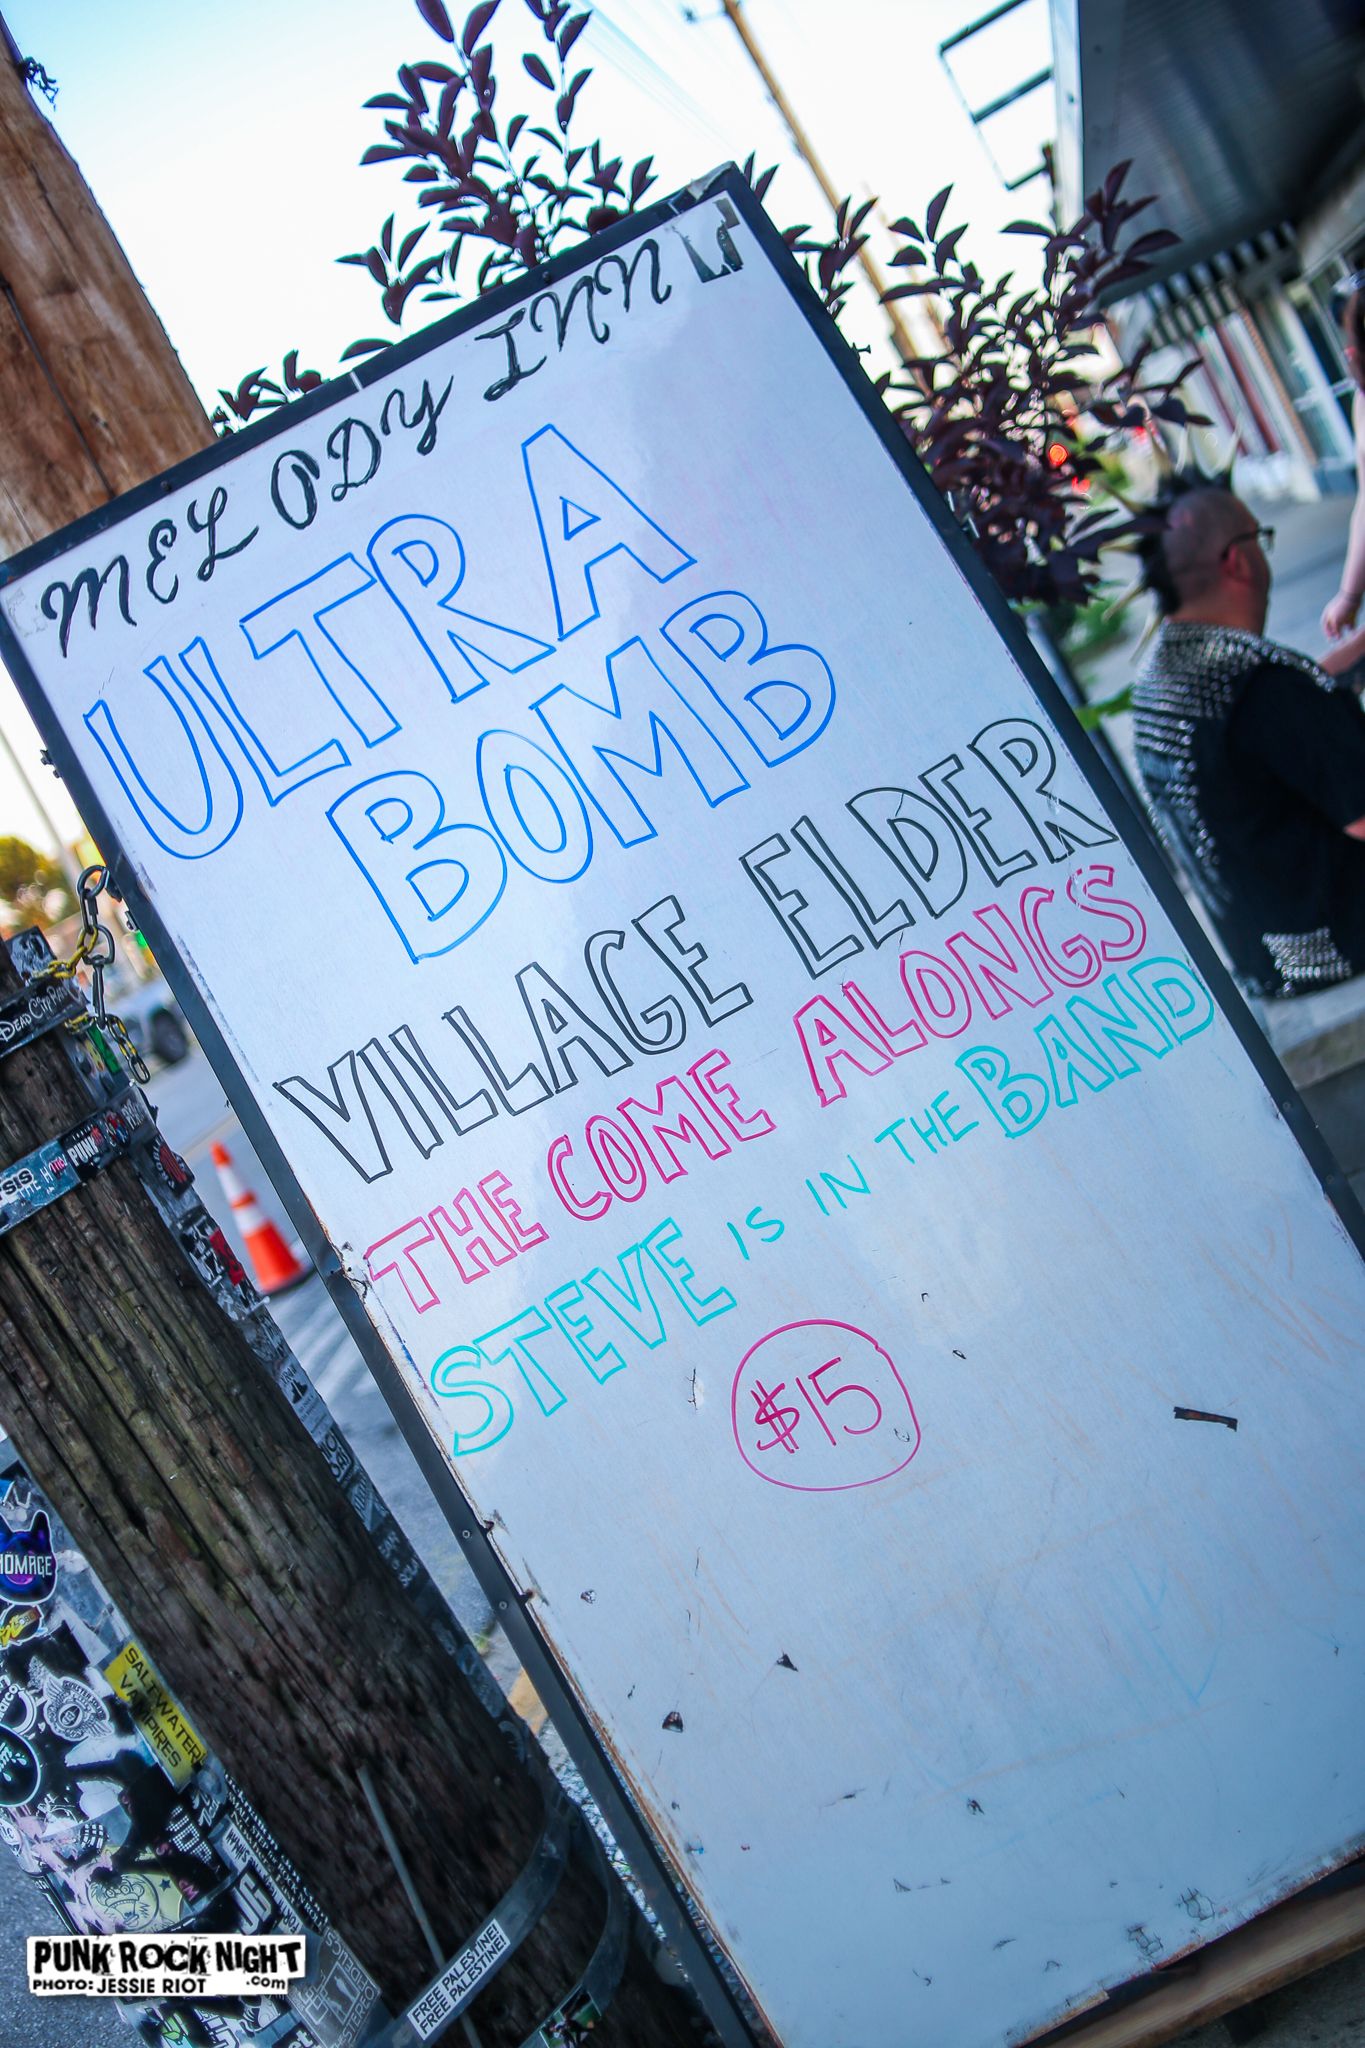 MELODY INN
ULTRA
BOMB
VILLAGE ELDER
THE COME ALONGS
STEVE IS IN THE BAND
$15
DEAD CITY
PUNK
HÖMAGE
SALTWATER
VAMPIRES
FREE PALESTINE!
FREE PALESTINE!
PUNK ROCK NIGHT
.com
PHOTO: JESSIE RIOT